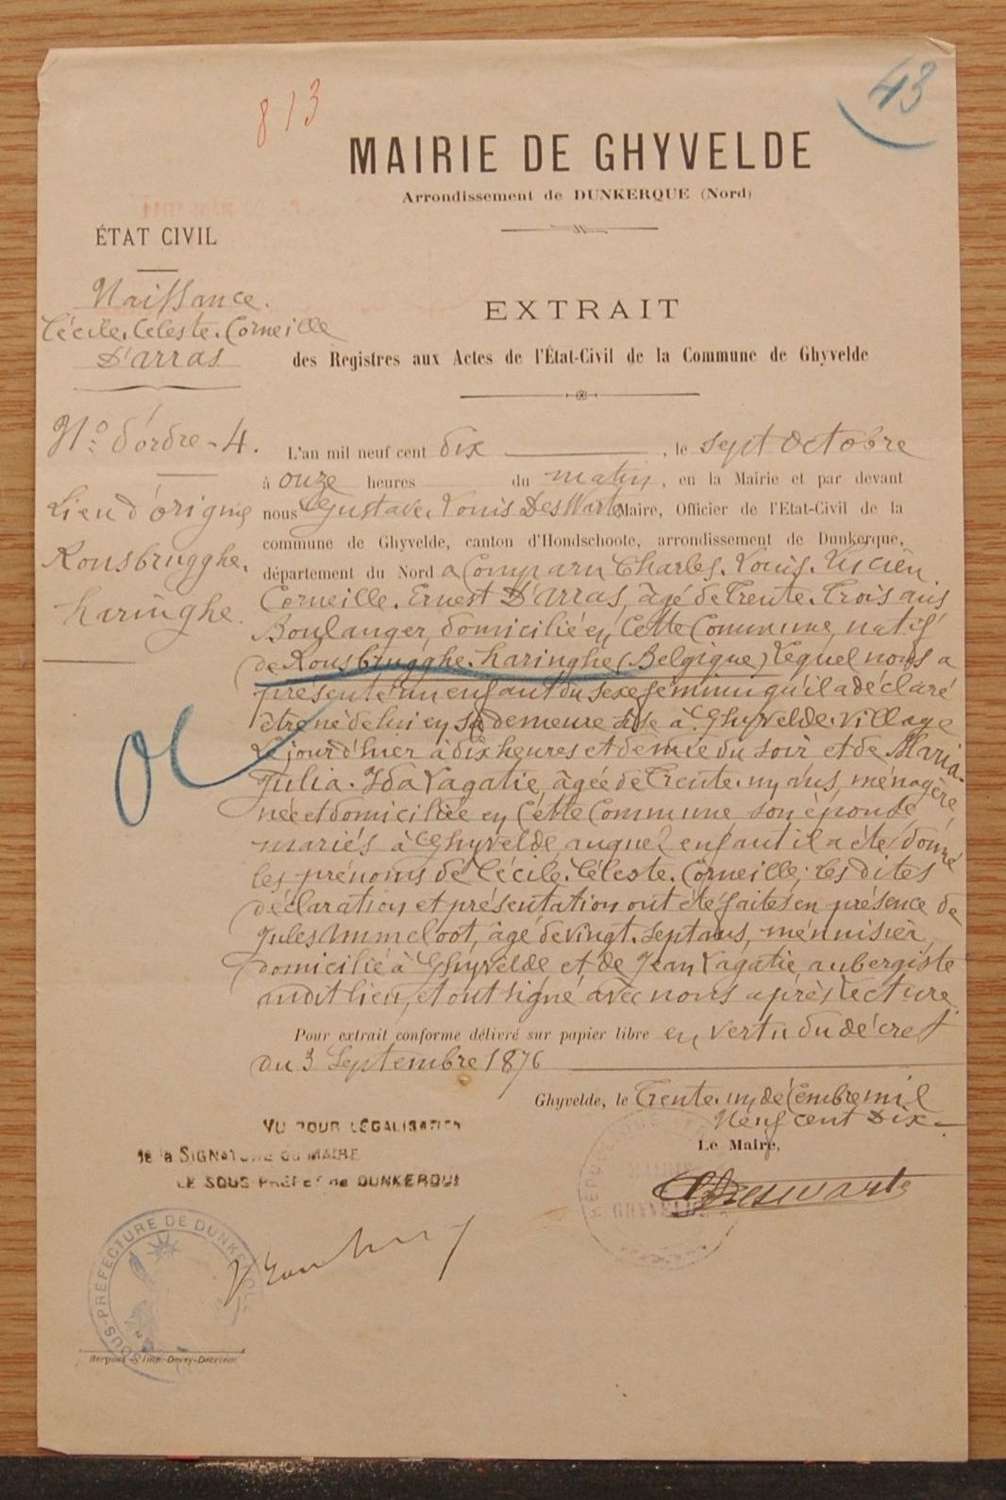 813
43
MAIRIE DE GHYVELDE
Arrondissement de DUNKERQUE (Nord)
ÉTAT CIVIL
Naissance.
Cécile. Céleste. Corneille
D'arras
EXTRAIT
des Registres aux Actes de l'État-Civil de la Commune de Ghyvelde
No d'ordre - 4.
Lieu d'origine
Rousbrugghe.
Haringhe.
L'an mil neuf cent dix, le sept Octobre
à onze heures du matin, en la Mairie et par devant
nous Gustave. Louis DesWarte Maire, Officier de l'Etat-Civil de la
commune de Ghyvelde, canton d'Hondschoote, arrondissement de Dunkerque,
département du Nord a Comparu Charles. Louis. Lucien
Corneille. Ernest D'arras, âgé de Trente. Trois ans
Boulanger, domicilié en Cette Commune, natif
de Rousbrugghe. Haringhe (Belgique) Lequel nous a
présenté un enfant du sexe féminin qu'il a déclaré
être né de lui en sa demeure sise à Ghyvelde. village
Le jour d'hier à dix heures et demie du soir et de Maria-
Julia. Ida Lagatie, âgée de Trente. un ans, ménagère,
née et domiciliée en Cette Commune son épouse,
mariés à Ghyvelde, auquel enfant il a été donné
les prénoms de Cécile. Céleste. Corneille; les dites
déclaration et présentation ont été faites en présence de
Jules Ammeloot, âgé de vingt. sept ans, menuisier,
domicilié à Ghyvelde et de Jean Lagatie aubergiste
audit lieu, et ont signé avec nous après Lecture.
Pour extrait conforme délivré sur papier libre en vertu du décret
du 3 Septembre 1876
Ghyvelde, le Trente. un décembre mil
Neuf cent Dix.
Le Maire,
GDeswarte
VU POUR LÉGALISATION
de la SIGNATURE du MAIRE
LE SOUS-PRÉFET de DUNKERQUE
SOUS-PRÉFECTURE DE DUNKERQUE
MAIRIE
GHYVELDE